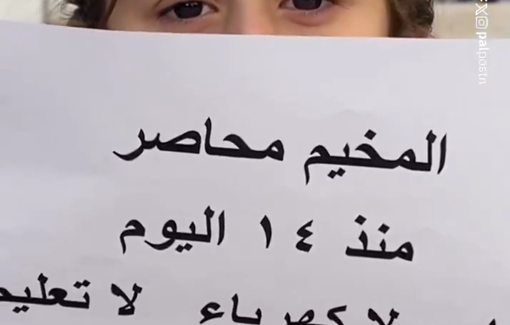 المخيم محاصر
منذ ١٤ اليوم
لا كهرباء لا تعليم
palpostn